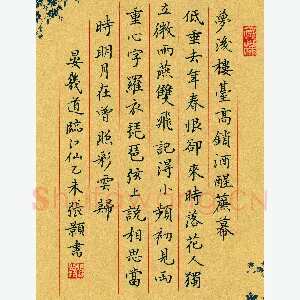 夢後樓臺高鎖酒醒簾幕
低垂去年春恨卻來時落花人獨
立微雨燕雙飛記得小頻初見兩
重心字羅衣琵琶弦上說相思當
時明月在曾照彩雲歸
晏幾道臨江仙乙未張顥書